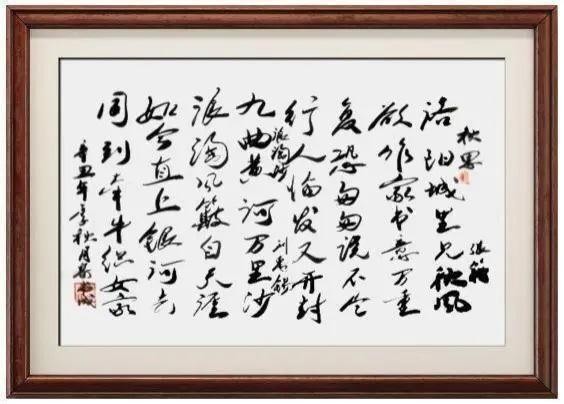 秋思
张籍
洛阳城里见秋风
欲作家书意万重
复恐匆匆说不尽
行人临发又开封
浪淘沙
刘禹锡
九曲黄河万里沙
浪淘风簸自天涯
如今直上银河去
同到牵牛织女家
辛丑年季秋月